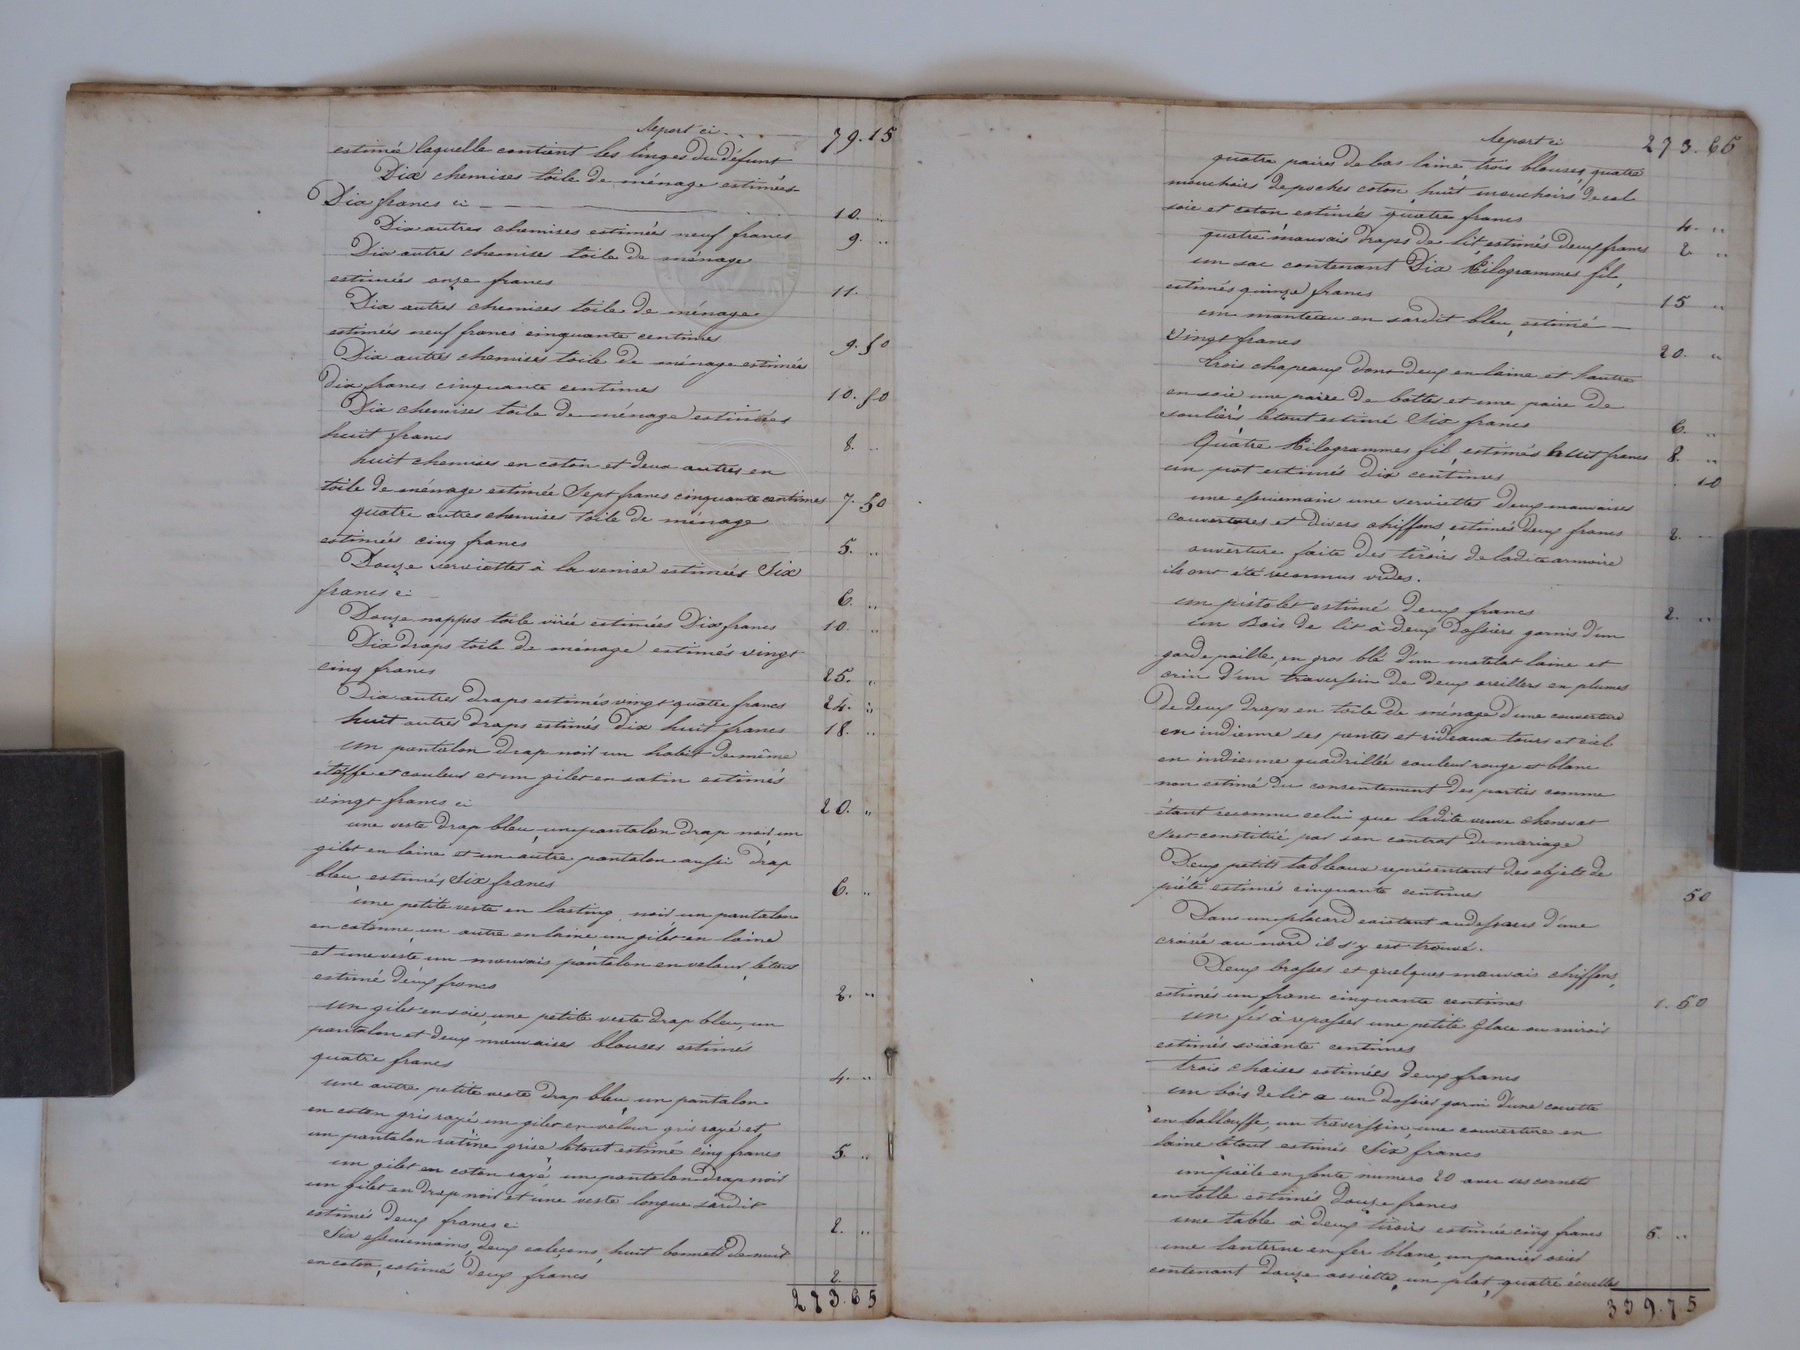 Report ci 79.15
estimée laquelle contient les linges du défunt
Dix chemises toile de ménage estimées
Dix francs ci 10. "
Dix autres chemises estimées neuf francs 9. "
Dix autres chemises toile de ménage
estimées onze francs 11.
Dix autres chemises toile de ménage
estimées neuf francs cinquante centimes 9.50
Dix autres chemises toile de ménage estimées
Dix francs cinquante centimes 10.50
Dix chemises toile de ménage estimées
huit francs 8. "
huit chemises en coton et deux autres en
toile de ménage estimée Sept francs cinquante centimes 7.50
quatre autres chemises toile de ménage
estimées cinq francs 5. "
Douze serviettes à la venise estimées Six
francs ci 6. "
Douze nappes toile virée estimées Dix francs 10. "
Dix draps toile de ménage estimés vingt
cinq francs 25. "
Dix autres draps estimés vingt quatre francs 24. "
huit autres draps estimés dix huit francs 18. "
un pantalon drap noir un habit de même
étoffe et couleur et un gilet en satin estimés
vingt francs ci 20. "
une veste drap bleu, un pantalon drap noir un
gilet en laine et un autre pantalon aussi drap
bleu estimés Six francs 6. "
une petite veste en lasting noir un pantalon
en cotonne un autre en laine un gilet en laine
et une veste un mauvais pantalon en velour, le tout
estimé deux francs 2. "
un gilet en soie, une petite veste drap bleu, un
pantalon et deux mauvaises blouses estimés
quatre francs 4. "
une autre petite veste drap bleu, un pantalon
en coton gris rayé un gilet en velour gris rayé et
un pantalon ratine grise le tout estimé cinq francs 5. "
un gilet en coton rayé un pantalon drap noir
un gilet en drap noir et une veste longue sardit
estimés deux francs ci 2. "
Six essuiemains, deux caleçons, huit bonnets de nuit
en coton, estimés deux francs 2.
273.65
Report ci 273.65
quatre paires de bas laine, trois blouses, quatre
mouchoirs de poches coton, huit mouchoirs de col
soie et coton estimés quatre francs 4. "
quatre mauvais draps de lit estimés deux francs 2 "
un sac contenant Dix Kilogrammes fil,
estimés quinze francs 15 "
un manteau en sardit bleu, estimé
Vingt francs 20. "
trois chapeaux dont deux en laine et l'autre
en soie une paire de bottes et une paire de
souliers le tout estimé Six francs 6. "
Quatre Kilogrammes fil estimés huit francs 8. "
un pot estimés dix centimes . 10
une essuiemain une serviettes deux mauvaises
couvertures et divers chiffons, estimés deux francs 2. "
ouverture faite des tiroirs de ladite armoire
ils ont été reconnus vides.
un pistolet estimé deux francs 2. "
un Bois de lit à deux dossiers garnis d'un
garde paille, en gros blé d'un matelat laine et
crin d'un traversin de deux oreillers en plumes
De deux draps en toile de ménage d'une couverture
en indienne ses pantes et rideaux tours et ciel
en indienne quadrillée couleur rouge et blanc
non estimé du consentement des parties comme
étant reconnu celui que ladite veuve Chenevat
s'est constitué par son contrat de mariage
Deux petits tableaux représentant des objets de
piété estimés cinquante centimes 50
Dans un placard existant au dessous d'une
croisée au nord il s'y est trouvé.
Deux brosses et quelques mauvais chiffons,
estimés un franc cinquante centimes 1.50
un fer à repasser une petite Glace ou miroir
estimés soixante centimes
trois chaises estimées deux francs
un bois de lit a un dossier garni d'une couette
en ballouffe, un traversin, une couverture en
laine le tout estimés Six francs
un poële en fonte numero 20 avec ses cornets
en tolle estimés douze francs
une table à deux tiroirs estimée cinq francs 5. "
une lanterne en fer blanc, un panier osier
contenant douze assiettes, un plat, quatre écuelles
339.75